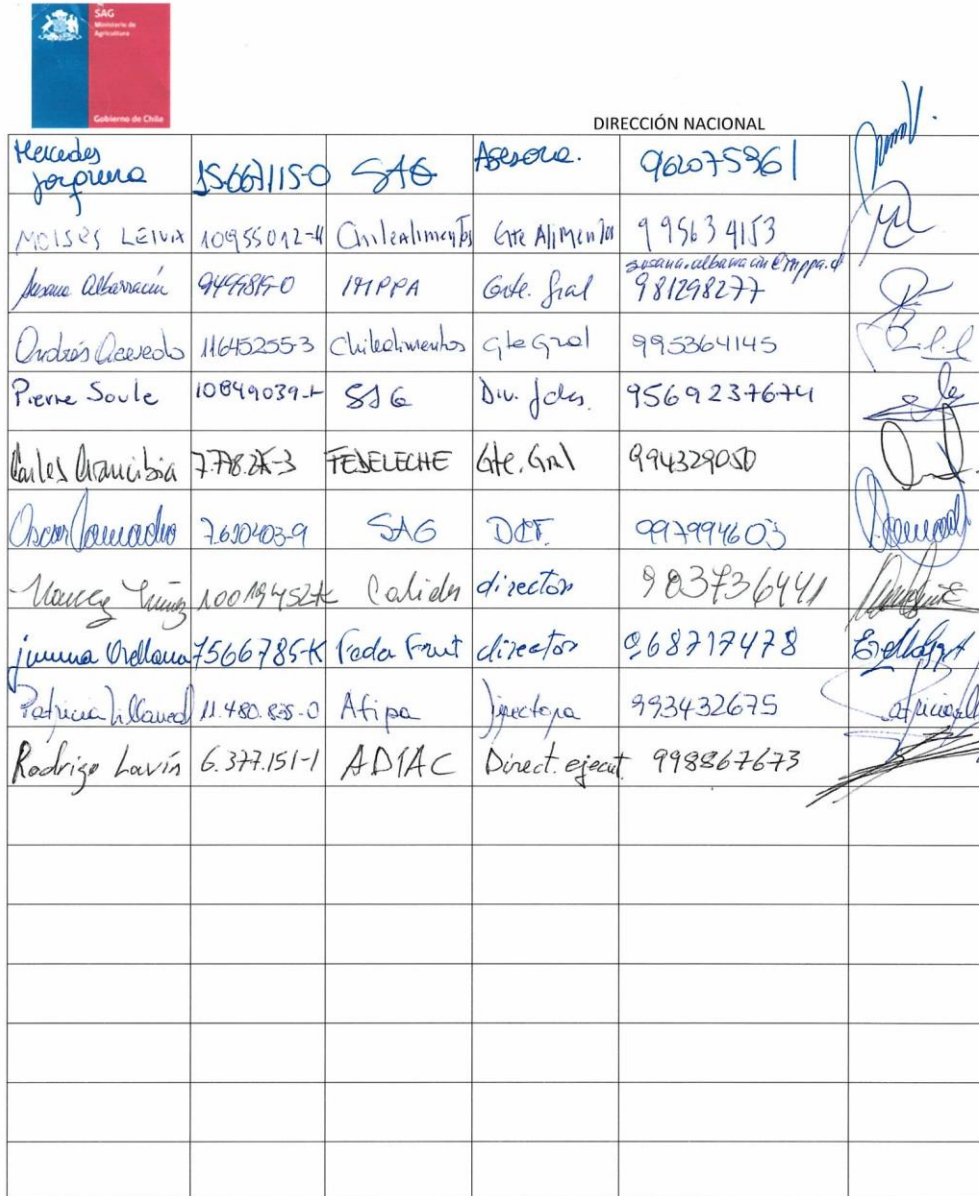 SAG
Ministerio de
Agricultura
Gobierno de Chile
DIRECCIÓN NACIONAL
Mercedes 15.667.115-0 SAG Asesora. 962075961
MOISES LEIVA Chilealimentos Gte Alimentos 995634153
susana.albarracin@imppa.cl
Susana Albarracin IMPPA Gnte. Gral 981298277
Andrés Acevedo 11645255-3 Chilealimentos Gte Gral 995364145
Pierre Soule SAG Div. 9569237674
Carlos Arancibia FEDELECHE Gte. Gral 994329050
Oscar Camacho 7.690403-9 SAG 997994603
director 983736441
Orellana 7566785-K Feda Frut director 968717478
Patricia 11.480.835-0 Afipa Directora 993432675
Rodrigo Lavín 6.377.151-1 ADIAC Direct. ejecut. 998867673